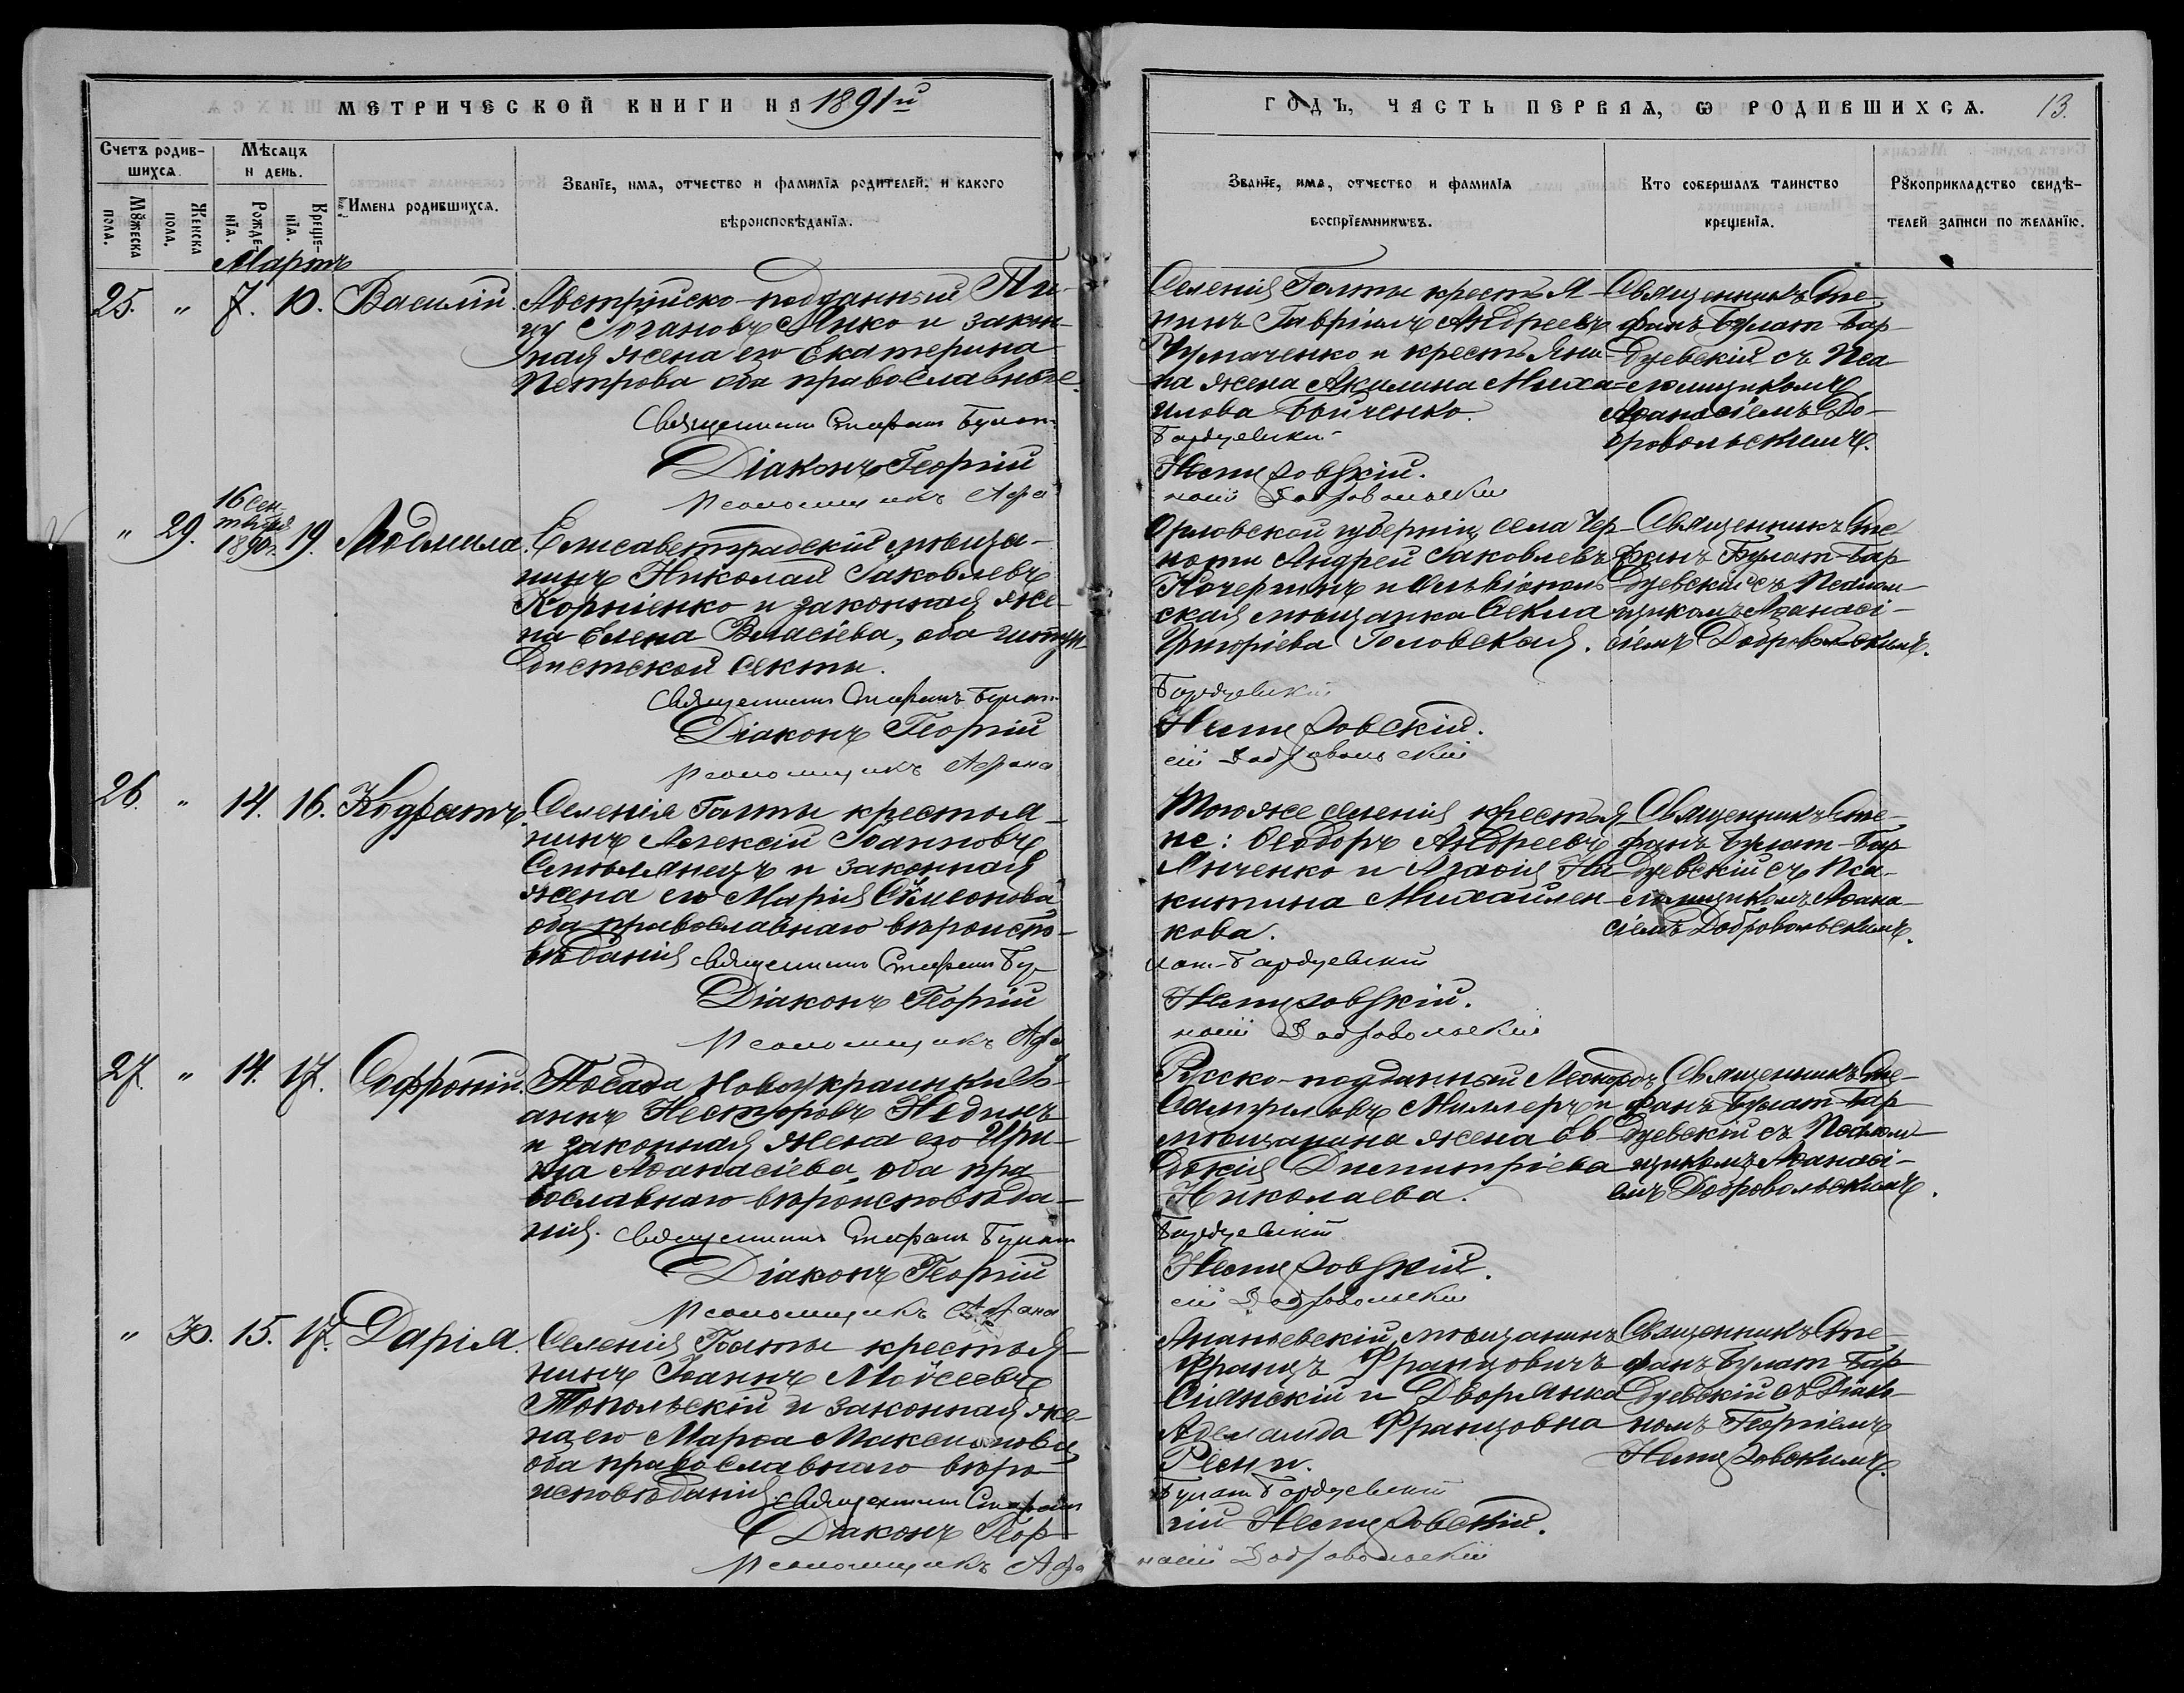 МЕТРИЧЕСКОЙ КНИГИ НА 1891й
ГОДЪ, ЧАСТЬ ПЕРВАЯ, Ѡ РОДИВШИХСЯ. 13.
Счетъ родив-
шихся.
Мѣсяцъ
и день.
Мужеска пола.
Женска пола.
Рожде-
нїя.
Креще-
нїя.
Имена родившихся.
Званїе, имя, отчество и фамилїя родителей, и какого
вѣроисповѣданїя.
Званїе, имя, отчество и фамилїя
воспрїемникѡвъ.
Кто совершалъ таинство
крещенїя.
Рꙋкоприкладство свидѣ-
телей записи по желанїю.
Мартъ
25. " 7. 10. Василій.
Австрійско-подданный
Іогановъ Янко и закон-
ная жена его Екатерина
Петрова оба православные.
Священникъ Стефанъ Булат-
Діаконъ Георгій
Псаломщикъ Афа
Селенія Голты крестья-
нинъ Гавріилъ Андреевъ
Чумаченко и крестьяни-
на жена Акилина Миха-
илова Бойченко.
Бардзевскій
Нестеровскій.
насій Добровольскій
Священникъ Сте-
фанъ Булат-Бар-
дзевскій съ Пса-
ломщикомъ
Аѳанасіемъ До-
бровольскимъ.
" 29. 16 Сен-
тября
1890 г. 19. Людмила.
Елисаветградскій мѣща-
нинъ Николай Іаковлевъ
Корніенко и законная же-
на Елена Власіева, оба штун-
дистской секты.
Священникъ Стефанъ Булат-
Діаконъ Георгій
Псаломщикъ Афана
Орловской губерніи, села Чер-
Андрей Іаковлевъ
Кочергинъ и Ольвіополь-
ская мѣщанка Ѳекла
Григоріева Головская.
Бардзевскій
Нестеровскій.
сій Добровольскій
Священникъ Сте-
фанъ Булат-Бар-
дзевскій съ Псалом-
щикомъ Аѳанасі-
Добровольскимъ.
26. " 14. 16. Кодратъ.
Селенія Голты крестья-
нинъ Алексій Іоанновъ
и законная
жена его Марія Симеонова
оба православнаго вѣроиспо-
вѣданія. Священникъ Стефанъ Бу-
Діаконъ Георгій
Псаломщикъ Афа
Тогоже селенія крестья-
не: Ѳеодоръ Андреевъ
Янченко и Агаѳія Ни-
китина Михайлен-
кова.
лат-Бардзевскій
Нестеровскій.
насій Добровольскій
Священникъ Сте-
фанъ Булат-Бар-
дзевскій съ Пса-
ломщикомъ Аѳана-
сіемъ Добровольскимъ.
27. " 14. 17. Софроній.
Посада Новоукраинки Іо-
аннъ Несторовъ Нединъ
и законная жена его Ири-
на Аѳанасіева, оба пра-
вославнаго вѣроисповѣда-
нія. Священникъ Стефанъ Булат
Діаконъ Георгій
Псаломщикъ Афана
Русско-подданный Леонардъ
Миллеръ и
мѣщанина жена Ев-
докія Димитріева
Николаева.
Бардзевскій
Нестеровскій.
сій Добровольскій
Священникъ Сте-
фанъ Булат-Бар-
дзевскій съ Псалом-
щикомъ Аѳанасі-
емъ Добровольскимъ.
" 30. 15. 17. Дарія.
Селенія Голты крестья-
нинъ Іоаннъ Моѵсеевъ
Топольскій и законная же-
на его Марѳа Максимова,
оба православнаго вѣро-
исповѣданія. Священникъ Стефанъ
Діаконъ Геор-
Псаломщикъ Афа
Ананьевскій мѣщанинъ
Францъ Францовичъ
и Дворянка
Аделаида Францовна
Булат Бардзевскій
гій Нестеровскій.
насій Добровольскій
Священникъ Сте-
фанъ Булат-Бар-
дзевскій съ Діако-
номъ Георгіемъ
Нестеровскимъ.